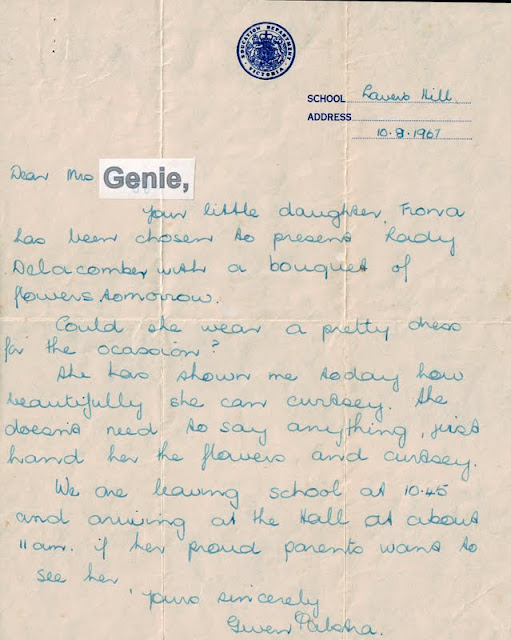 EDUCATION DEPARTMENT VICTORIA
SCHOOL Lavers Hill
ADDRESS
10.8.1967
Dear Mrs Genie,
Your little daughter, Fiona
has been chosen to present Lady
Delacomber with a bouquet of
flowers tomorrow.
Could she wear a pretty dress
for the ocassion?
She has shown me today how
beautifully she can curtsey. She
doesn't need to say anything, just
hand her the flowers and curtsey.
We are leaving school at 10.45
and arriving at the Hall at about
11am. if her proud parents want to
see her.
Yours sincerely
Gwen